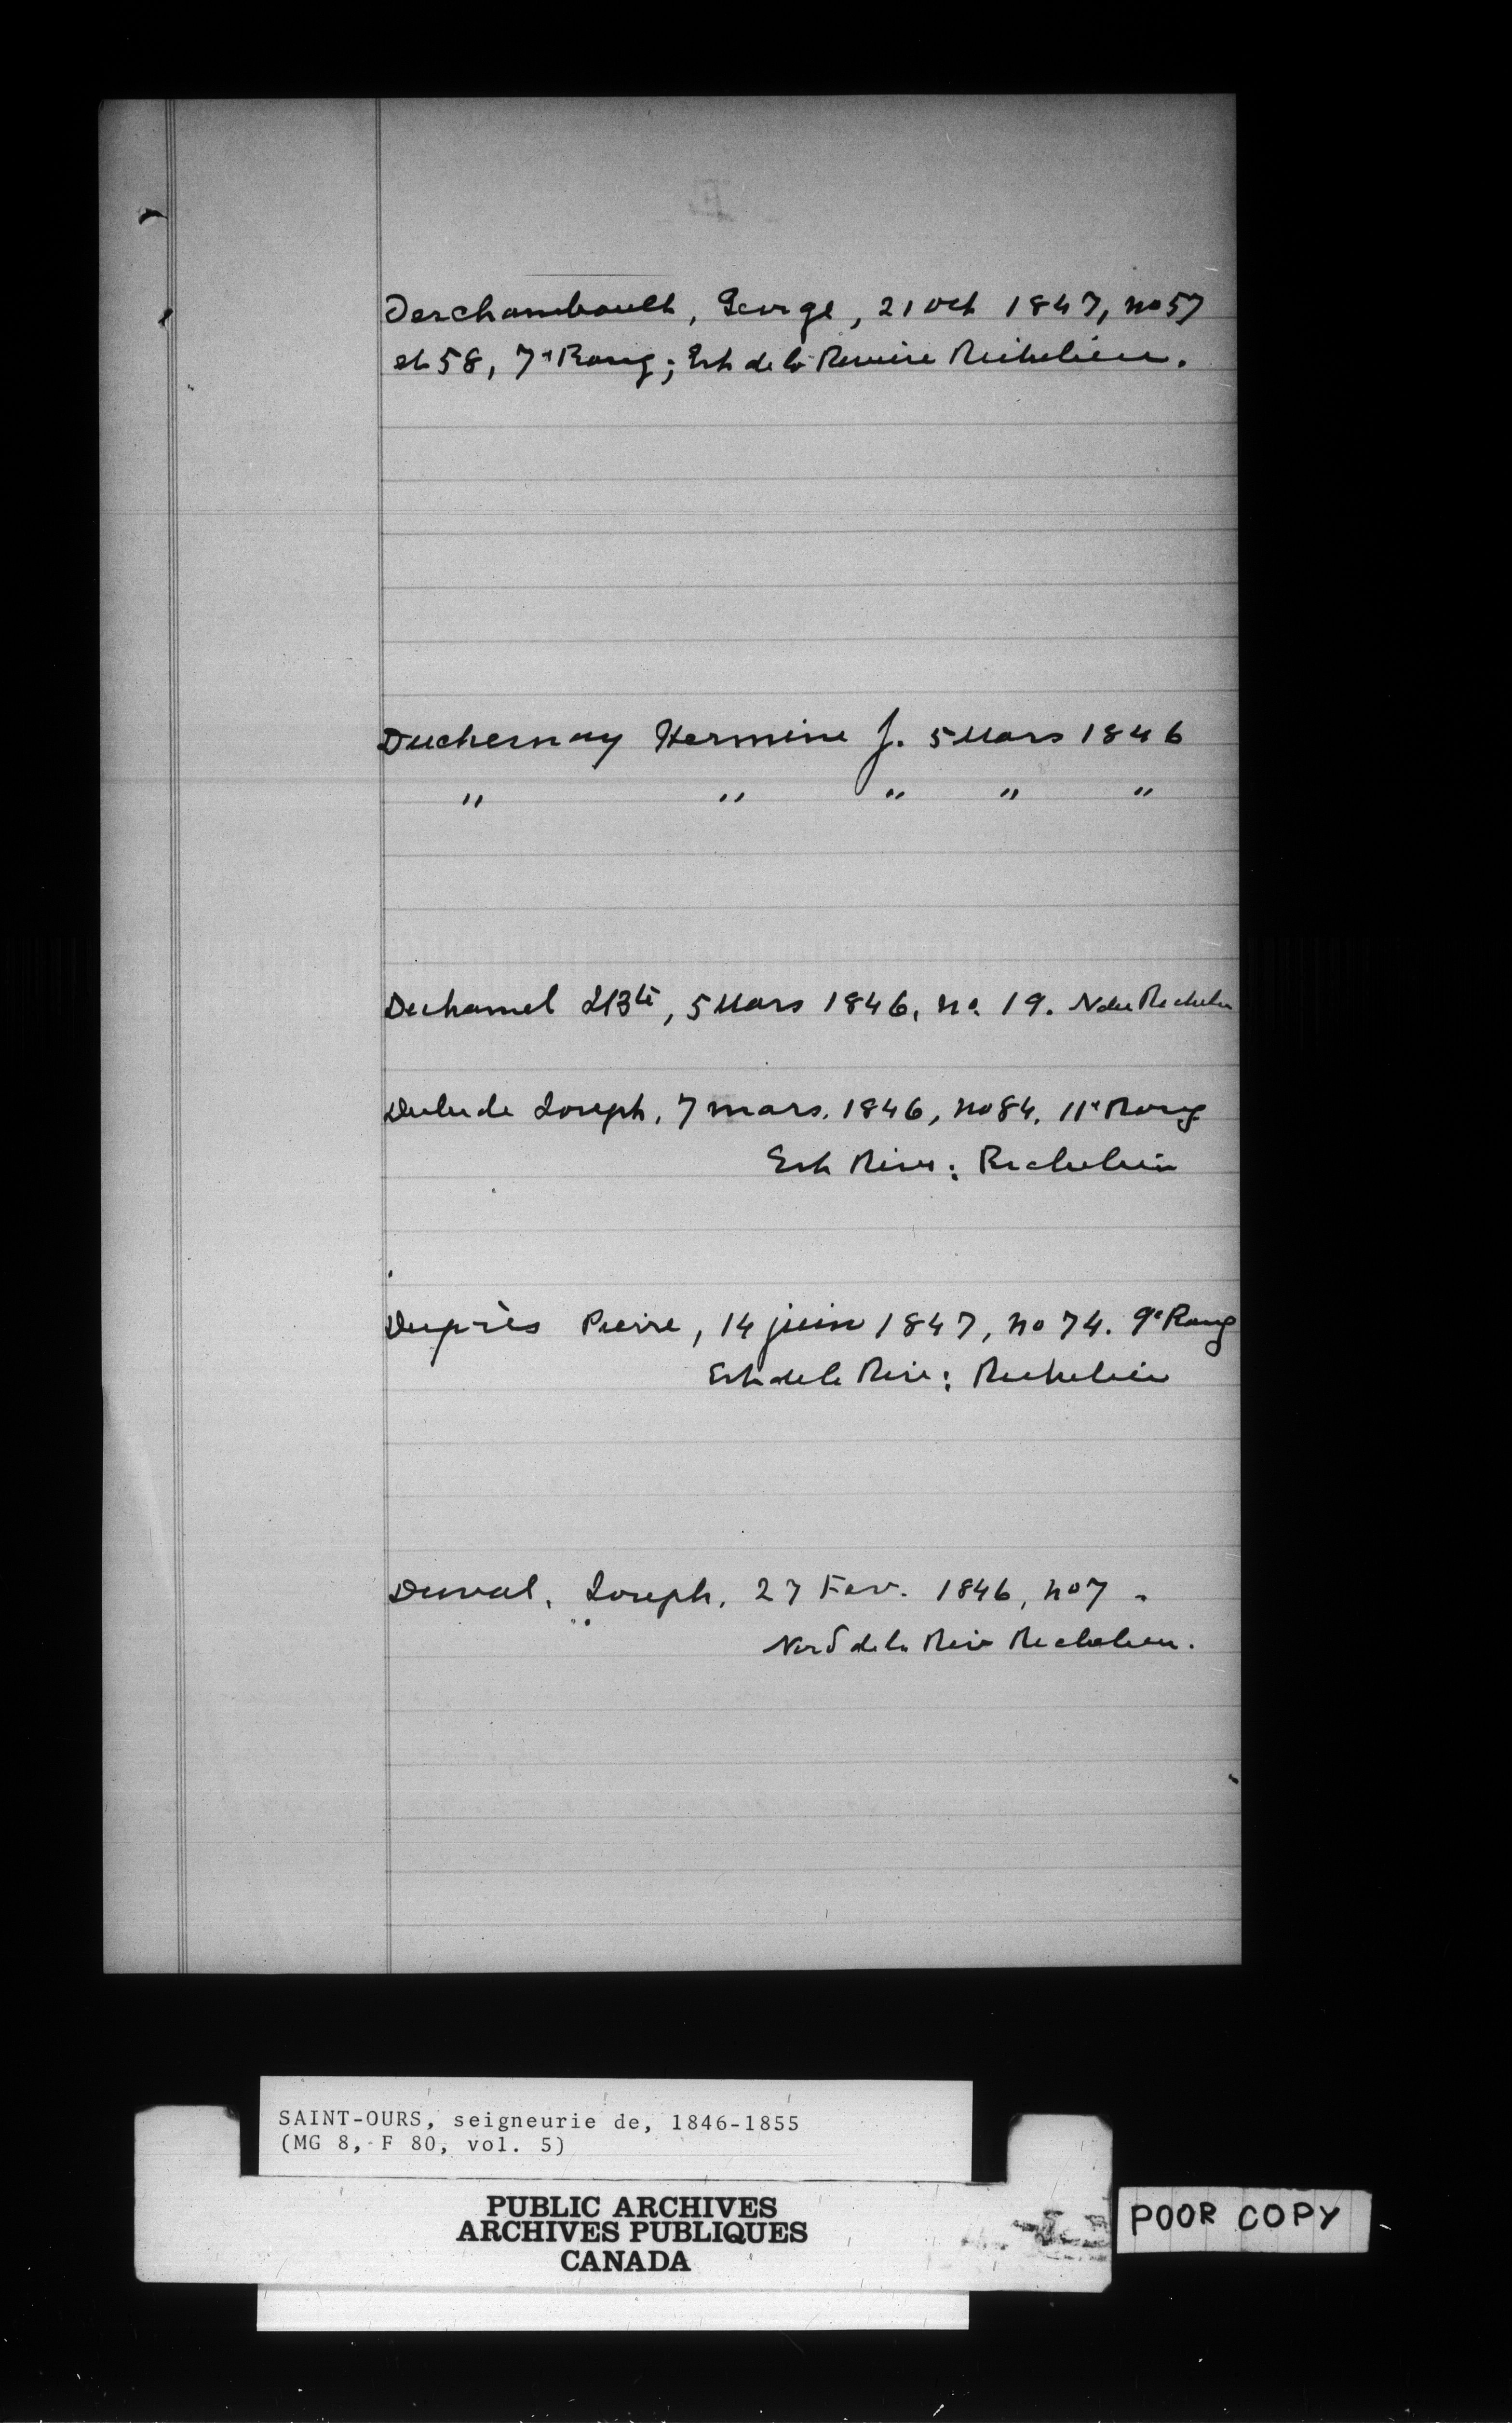 Deschambault, George, 21 Oct 1847, no 57
et 58, 7e Rang; Est de la Rivière Richelieu.
Duchesnay Hermine J. 5 Mars 1846
" " " " "
Duhamel JBte, 5 Mars 1846, no. 19. N du Richelieu
Dulude Joseph, 7 mars. 1846, no 84. 11e Rang
Est Riv: Richelieu
Duprès Pierre, 14 juin 1847, no 74. 9e Rang
Est de la Riv: Richelieu
Duval, Joseph, 27 Fev. 1846, no 7.
Nord de la Riv Richelieu.
SAINT-OURS, seigneurie de, 1846-1855
(MG 8, F 80, vol. 5)
PUBLIC ARCHIVES
ARCHIVES PUBLIQUES
CANADA
POOR COPY